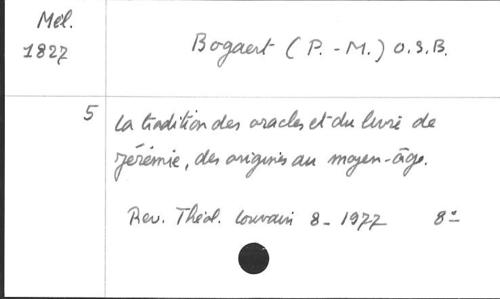 Mel.
1827
Bogaert (P.-M.) O.S.B.
5
La tradition des oracles et du livre de
Jérémie, des origines au moyen-âge.
Rev. Théol. Louvain 8-1977 8°